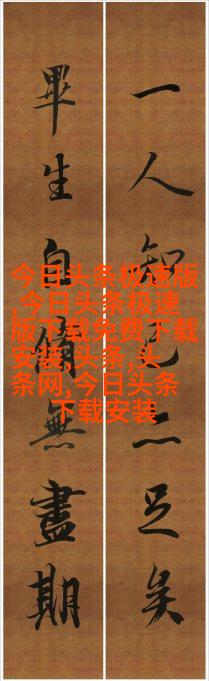 一人知己亦足矣
畢生自脩無盡期
今日头条极速版
,今日头条极速
版下载免费下载
安装,头条,头
条网,今日头条
下载安装